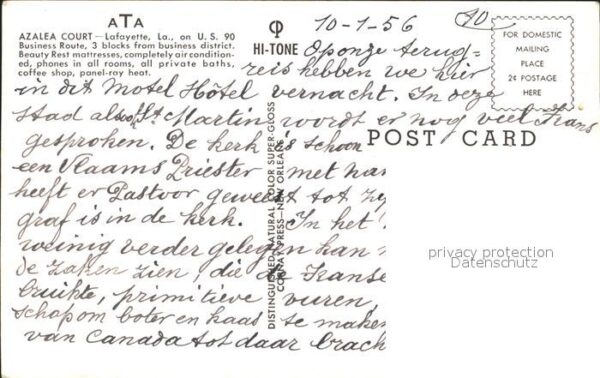 ATA
AZALEA COURT — Lafayette, La., on U. S. 90
Business Route, 3 blocks from business district.
Beauty Rest mattresses, completely air condition-
ed, phones in all rooms, all private baths,
coffee shop, panel-ray heat.
HI-TONE
10-1-56
10
FOR DOMESTIC
MAILING
PLACE
2¢ POSTAGE
HERE
Op onze terug=
reis hebben we hier
in dit Motel Hôtel vernacht. In deze
stad alsook St Martin, wordt er nog veel Frans
gesproken. De kerk is schoon
een Vlaams Priester met
heeft er Pastoor geweest tot
graf is in de kerk. In het
weinig verder gelegen kan=
de zaken zien, die de Franse
bruikte, primitieve vuren,
schop om boter en kaas te maken
van Canada tot daar brach
POST CARD
DISTINGUISHED NATURAL COLOR SUPER-GLOSS
PRESS—NEW ORLEANS
privacy protection
Datenschutz